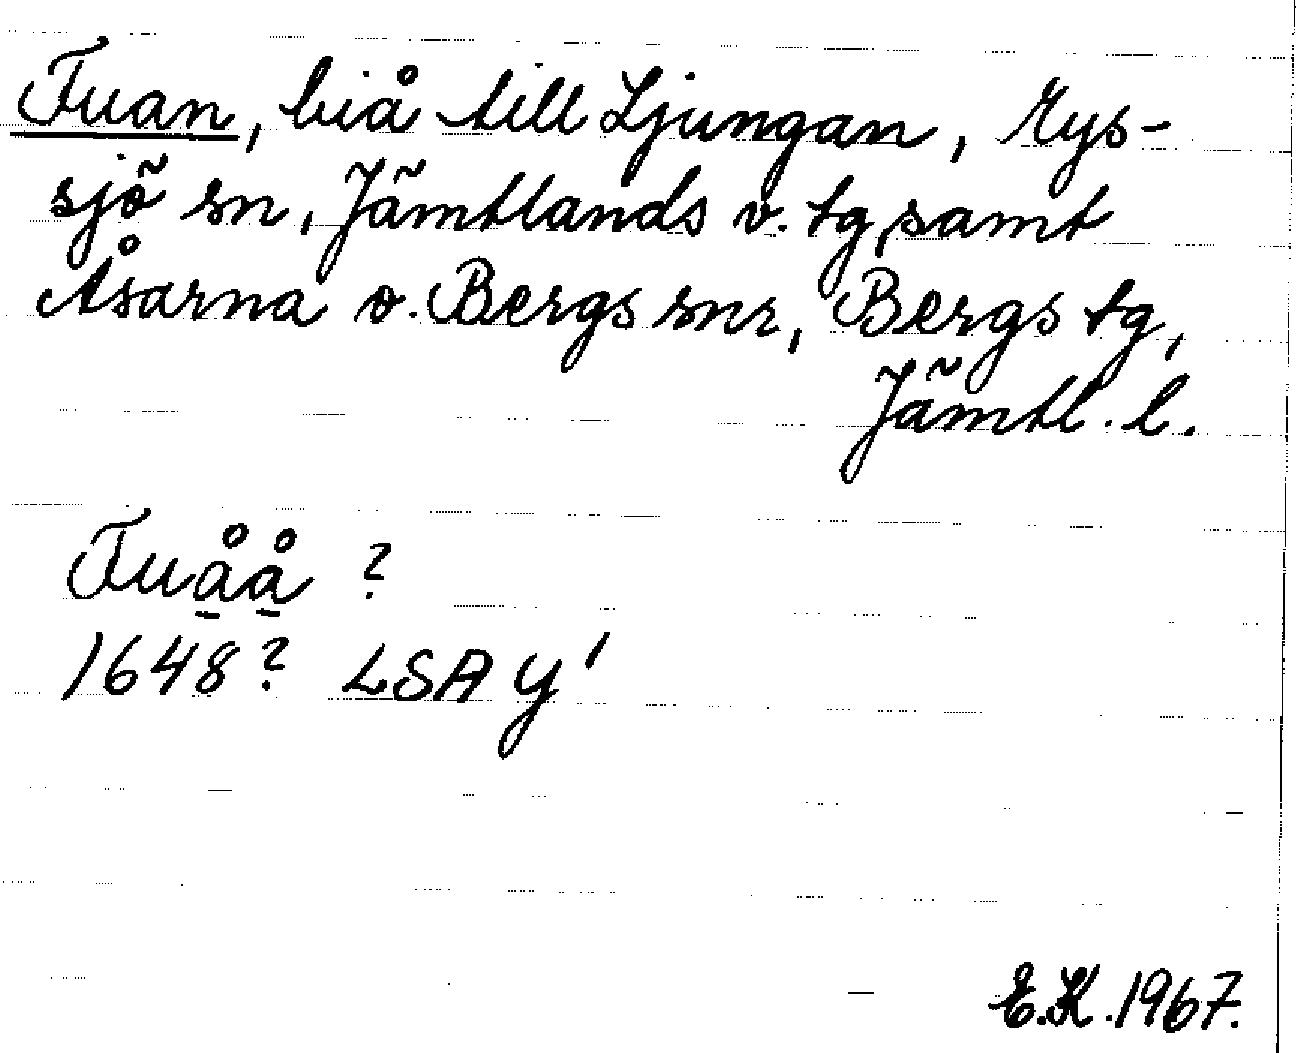 Fuan, biå till Ljungan, Rys-
sjö sn, Jämtlands v. tg samt
Åsarna o. Bergs snr, Bergs tg,
Jämtl. l.
Fuåå ?
1648? LSA Y'
E.K. 1967.